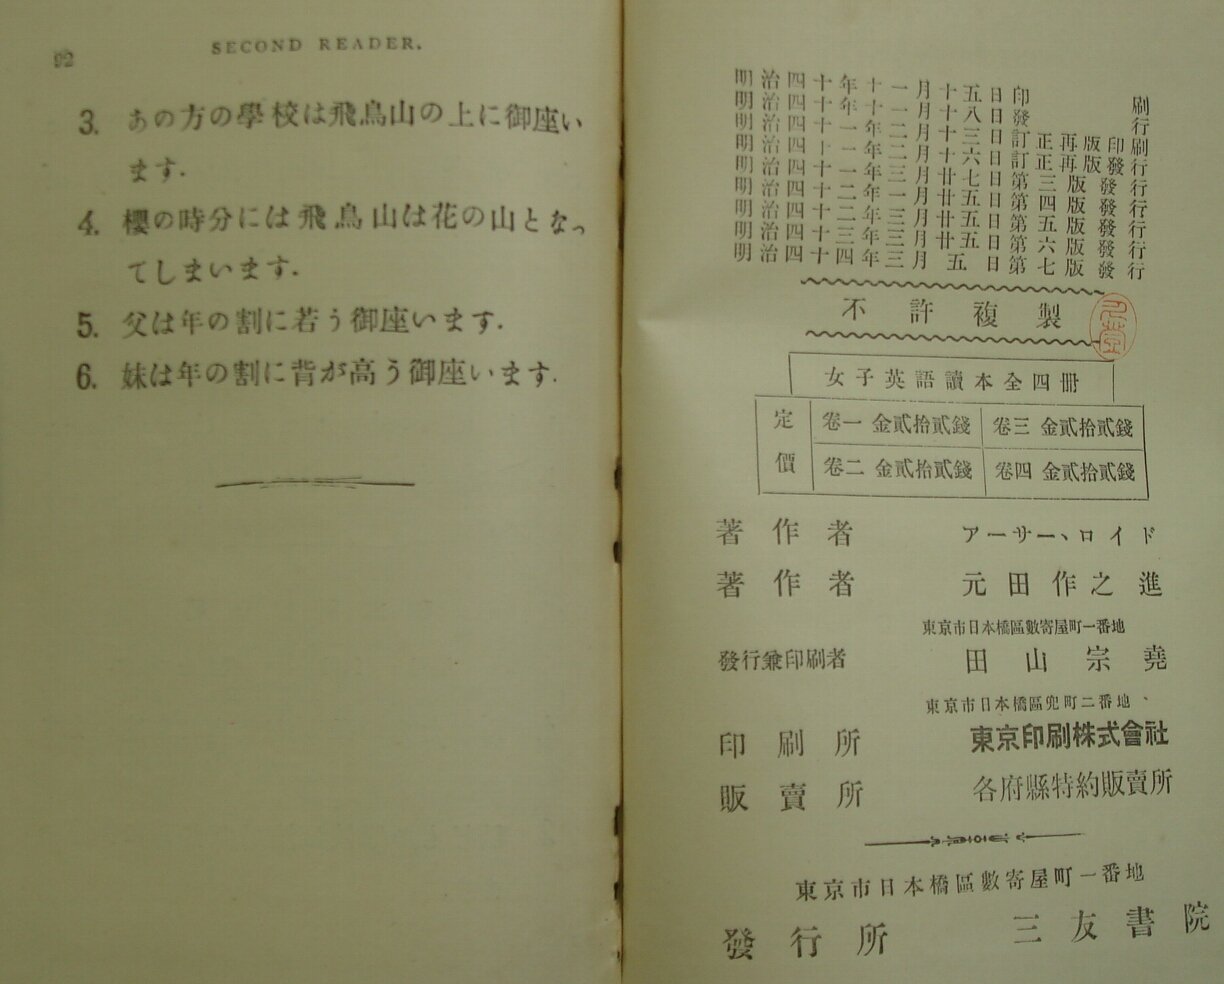 92 SECOND READER.
3. あの方の學校は飛鳥山の上に御座い
ます.
4. 櫻の時分には飛鳥山は花の山となっ
てしまいます.
5. 父は年の割に若う御座います.
6. 妹は年の割に背が高う御座います.
明治四十年十一月十五日印刷
明治四十年十一月十八日發行
明治四十一年二月十三日訂正再版印刷
明治四十一年二月十六日訂正再版發行
明治四十一年三月廿七日第三版發行
明治四十二年一月廿五日第四版發行
明治四十二年三月廿五日第五版發行
明治四十三年三月廿五日第六版發行
明治四十四年三月五日第七版發行
不許複製
女子英語讀本全四冊
定價
卷一 金貳拾貳錢 卷三 金貳拾貳錢
卷二 金貳拾貳錢 卷四 金貳拾貳錢
著作者 アーサー、ロイド
著作者 元田作之進
東京市日本橋區數寄屋町一番地
發行兼印刷者 田山宗堯
東京市日本橋區兜町二番地
印刷所 東京印刷株式會社
販賣所 各府縣特約販賣所
東京市日本橋區數寄屋町一番地
發行所 三友書院